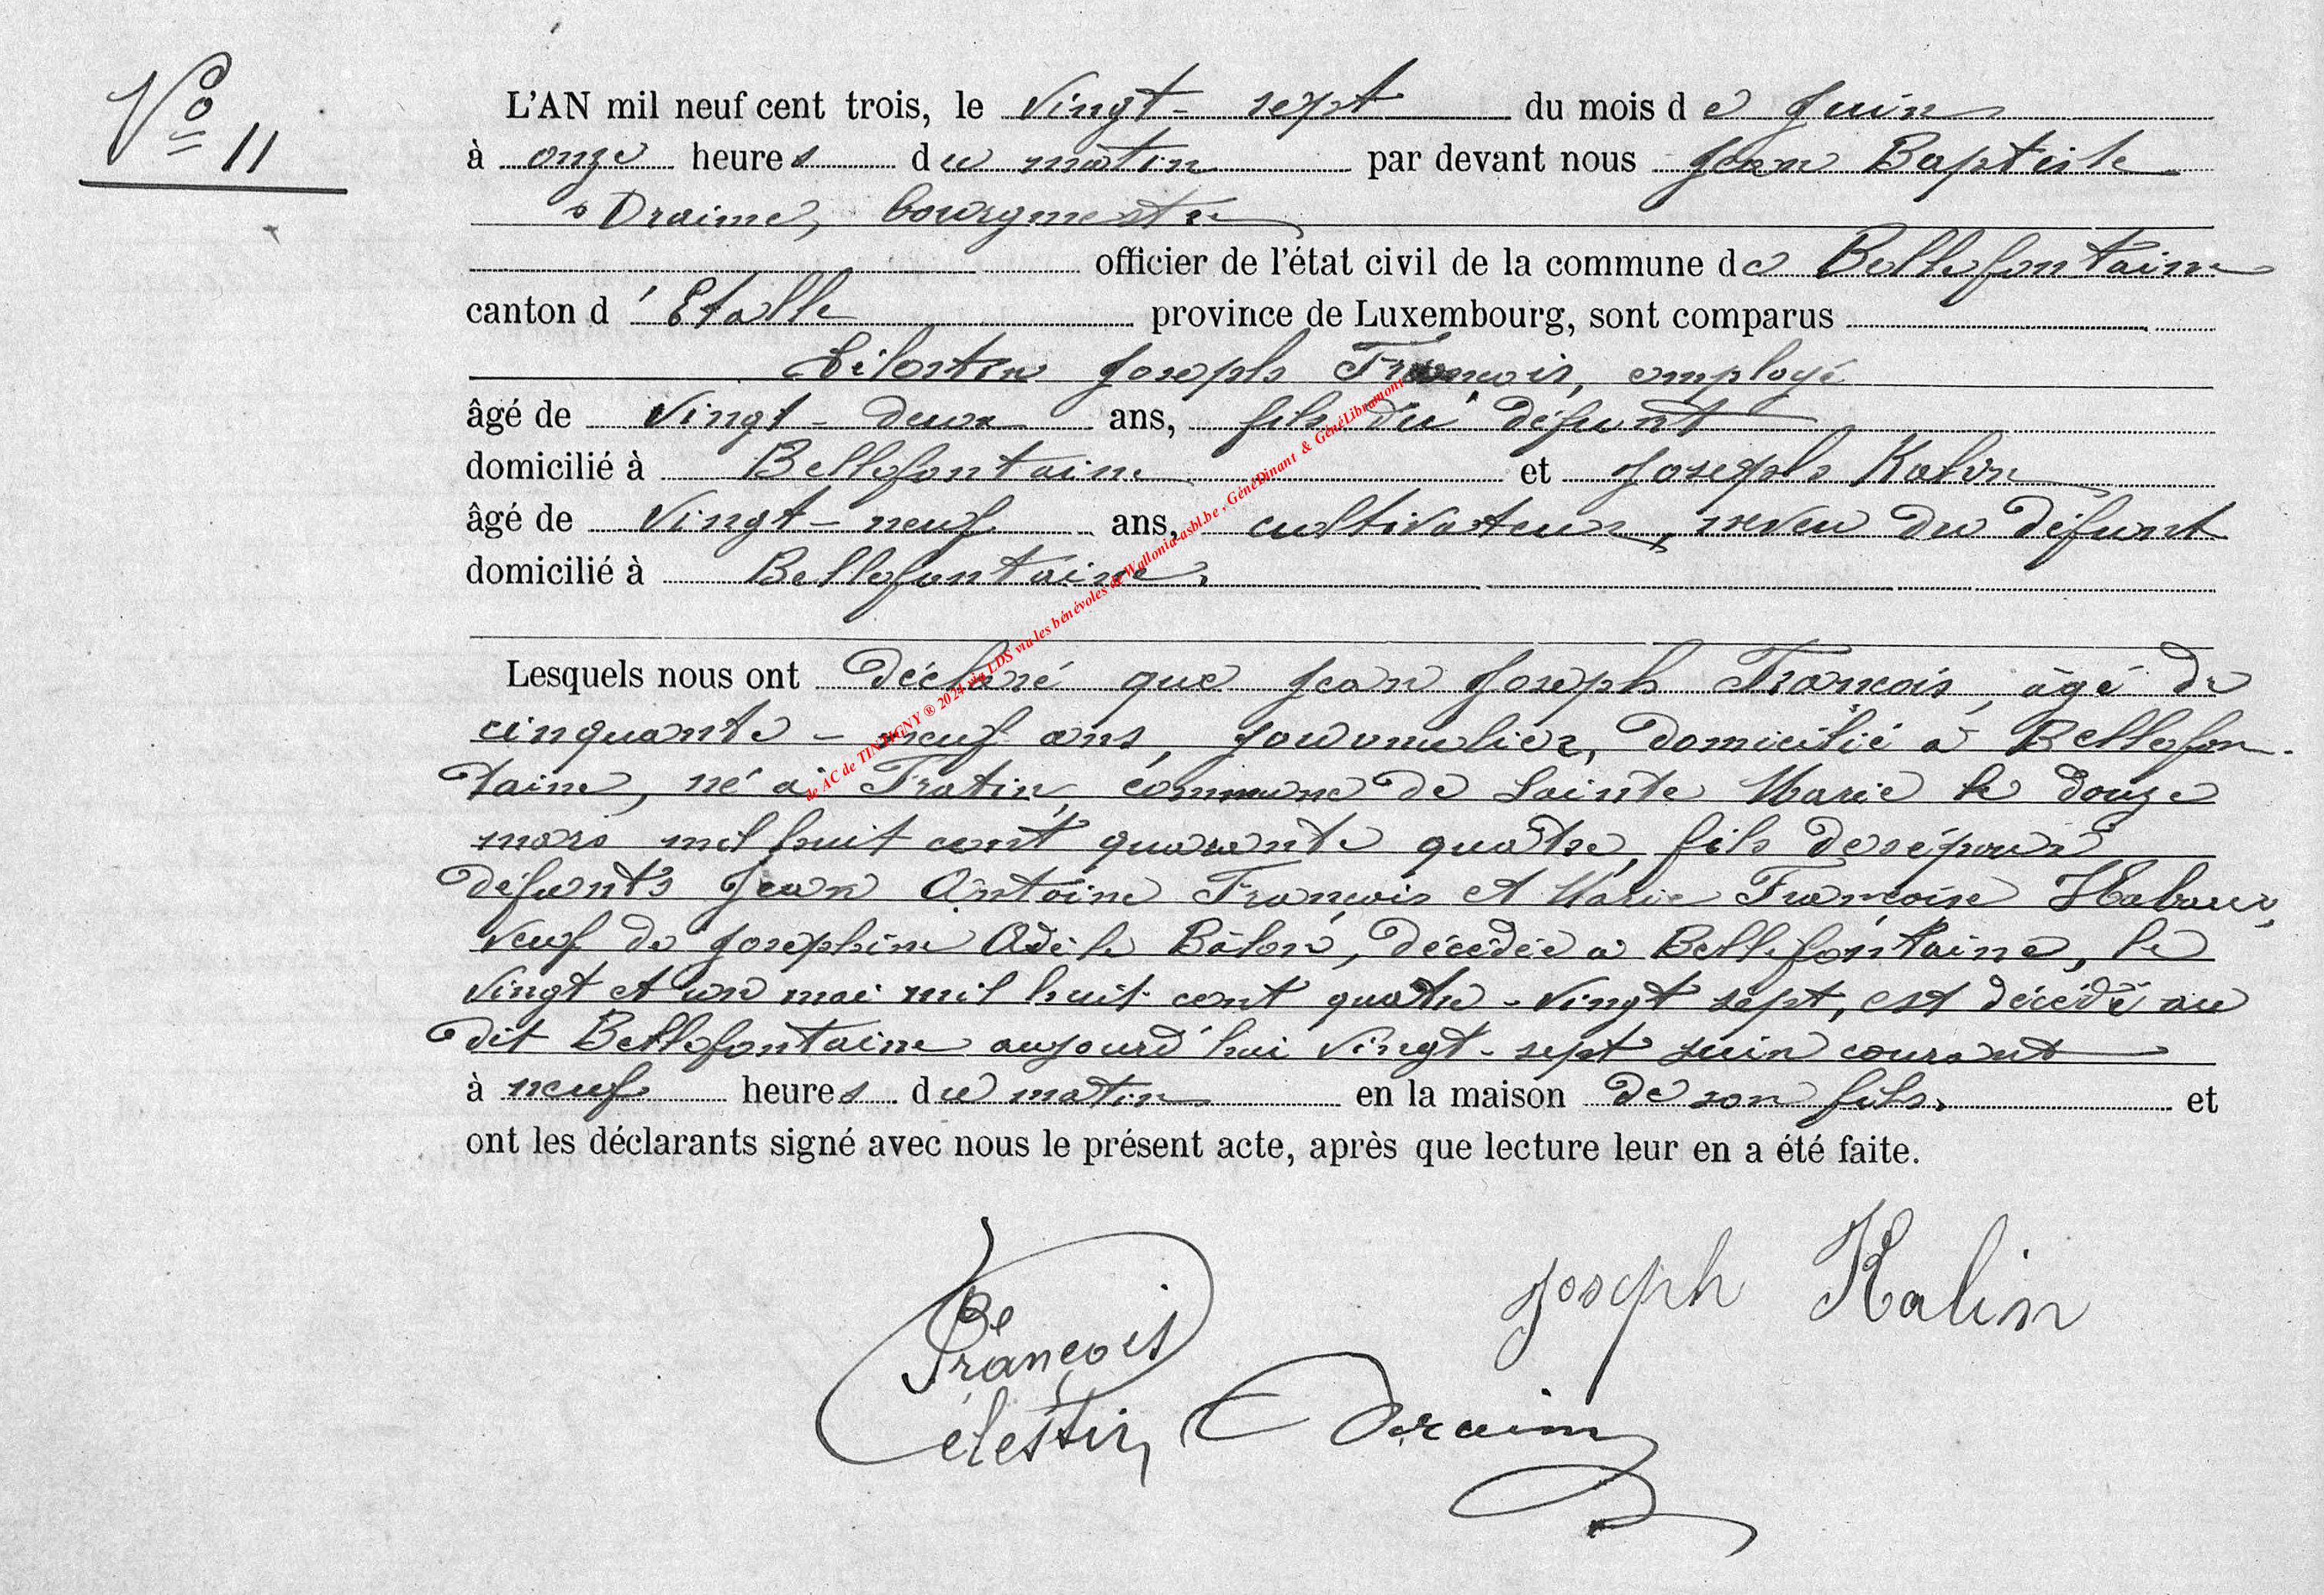 No 11
L'AN mil neuf cent trois, le vingt-sept du mois de Juin
à onze heures du matin par devant nous Jean Baptiste
Draime, bourgmestre
officier de l'état civil de la commune de Bellefontaine
canton d'Etalle province de Luxembourg, sont comparus
Célestin Joseph François, employé
âgé de vingt-deux ans, fils du défunt
domicilié à Bellefontaine et Joseph Kalin
âgé de vingt-neuf ans, cultivateur, neveu du défunt
domicilié à Bellefontaine,
Lesquels nous ont déclaré que Jean Joseph François, âgé de
cinquante-neuf ans, journalier, domicilié à Bellefon-
taine, né à Fratin, commune de Sainte Marie le douze
mars mil huit cent quarante quatre, fils des époux
défunts Jean Antoine François et Marie Françoise Habaru,
veuf de Joséphine Adèle Balon, décédée à Bellefontaine, le
vingt et un mai mil huit cent quatre-vingt sept, est décédé au
dit Bellefontaine aujourd'hui vingt-sept juin courant
à neuf heures du matin en la maison de son fils, et
ont les déclarants signé avec nous le présent acte, après que lecture leur en a été faite.
Joseph Kalin
François
Célestin Draime
de AC de TINTIGNY ® 2024 via LDS via les bénévoles de Wallonia-asbl.be, GénéDinant & GénéLibramont